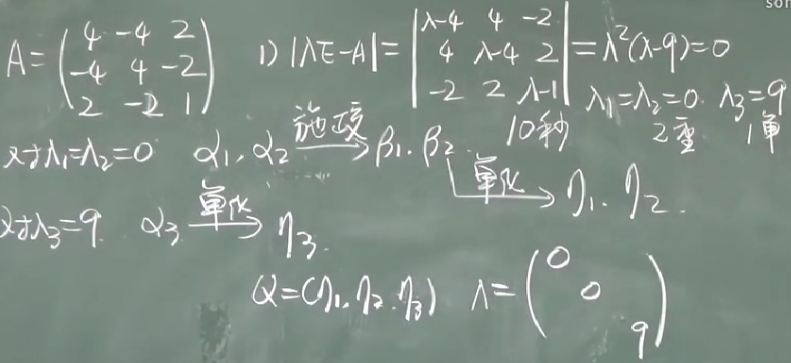 A=(4 -4 2
-4 4 -2
2 -2 1)
1) |λE-A|=|λ-4 4 -2
4 λ-4 2
-2 2 λ-1|=λ²(λ-9)=0
λ₁=λ₂=0. λ₃=9
10秒 2重 1单
对λ₁=λ₂=0 α₁, α₂ 施密 β₁. β₂
单化 η₁. η₂.
对λ₃=9. α₃ 单化 η₃.
Q=(η₁. η₂. η₃) Λ=(0
0
9)